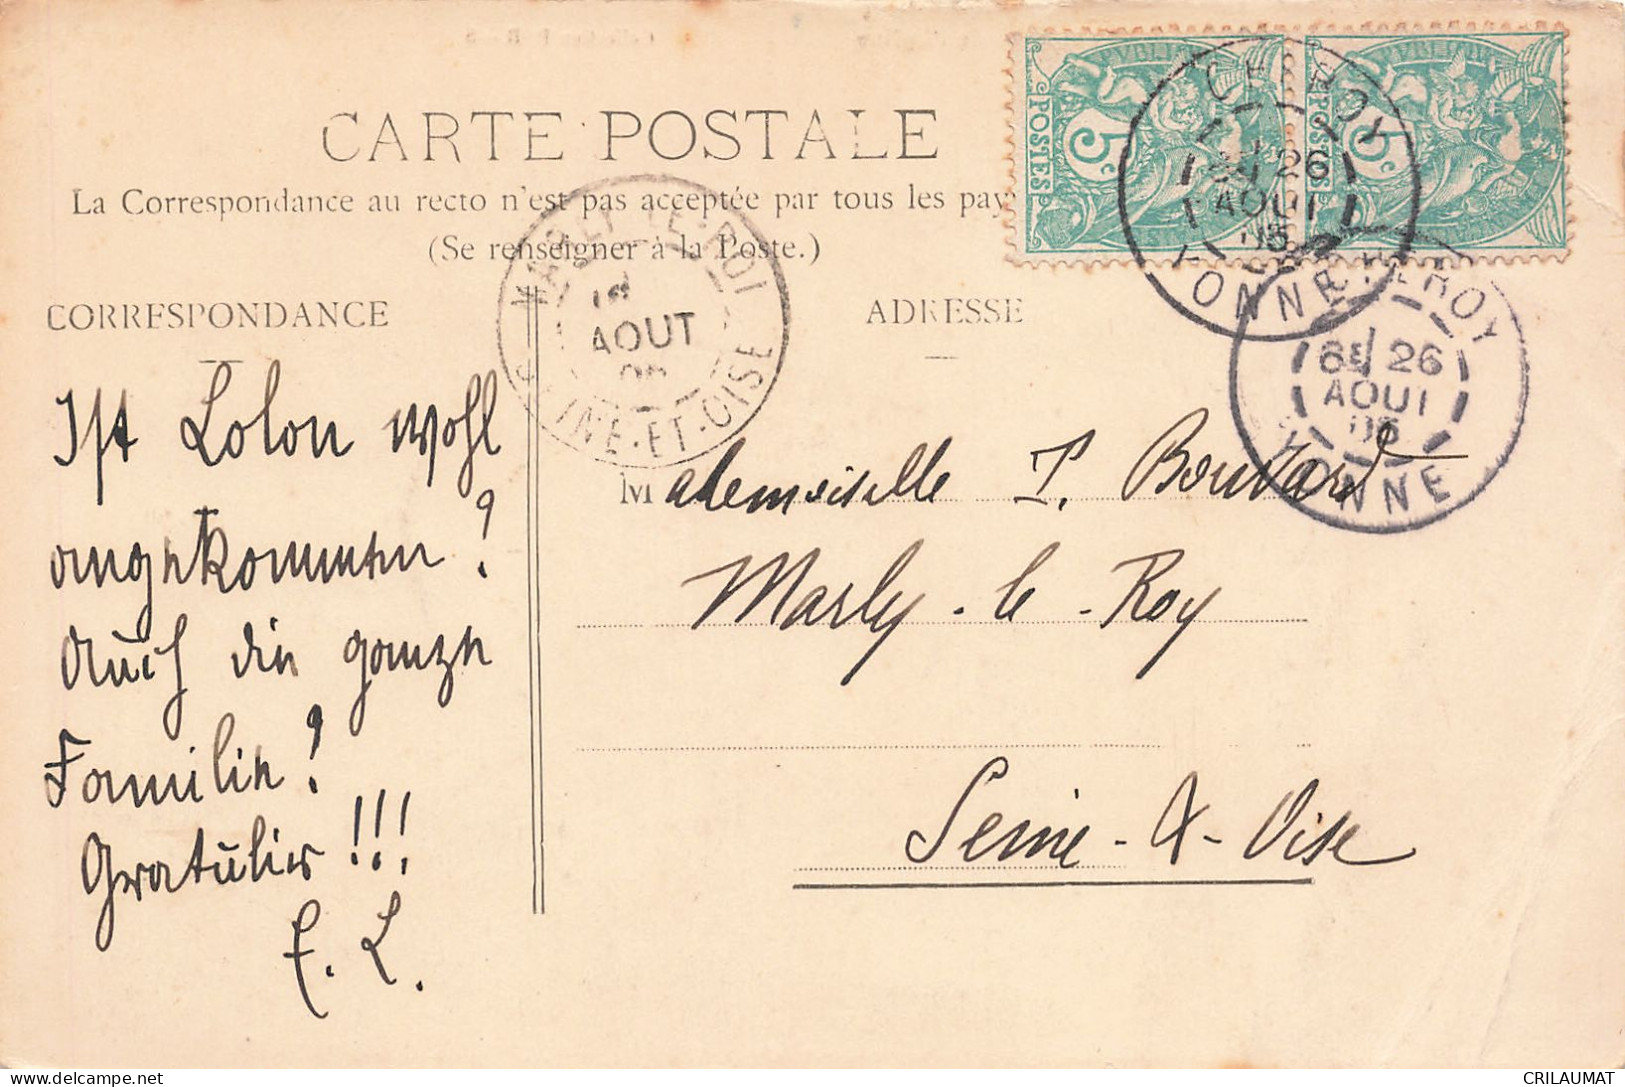 CARTE POSTALE
La Correspondance au recto n'est pas acceptée par tous les pay
(Se renseigner à la Poste.)
CORRESPONDANCE
ADRESSE
5c POSTES
5c POSTES
CHEROY
6E 26
AOUT
05
YONNE
CHEROY
6E 26
AOUT
05
YONNE
MARLY-LE-ROI
AOUT
SEINE-ET-OISE
Ist Lolon wohl
angekommen?
Auch die ganze
Familie?
Gratulier!!!
E. L.
Mademoiselle P. Bouvard
Marly-le-Roy
Seine-&-Oise
CRILAUMAT